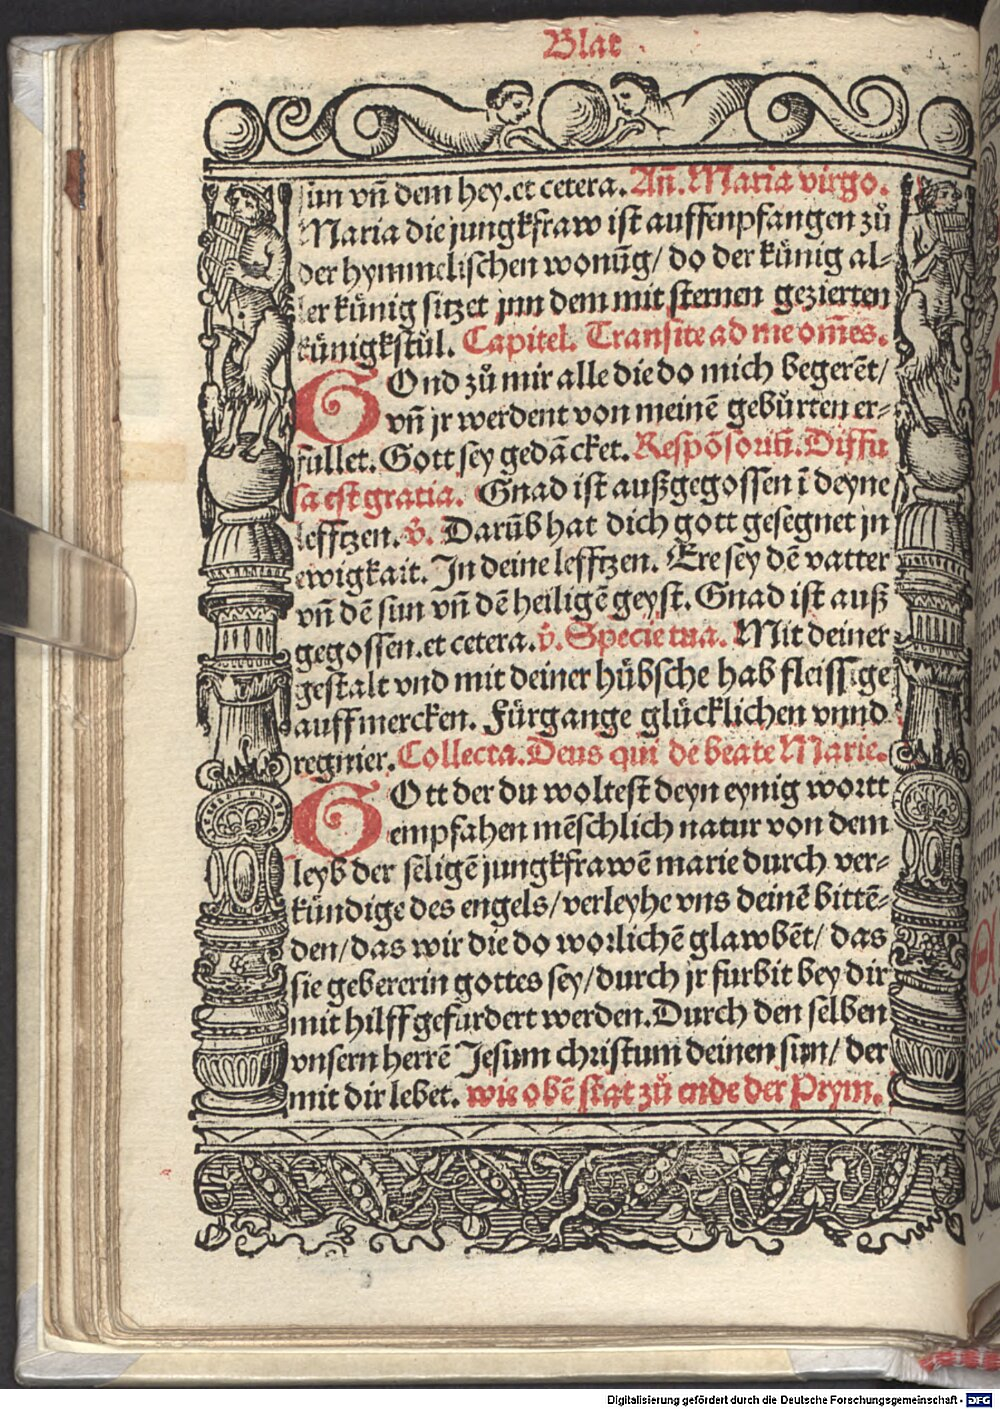 Blat
sün vñ dem hey. et cetera. Añ. Maria virgo.
Maria die jungkfraw ist auffenpfangen zů
der hymmelischen wonũg/ do der künig al-
ler künig sitzet jnn dem mit sternen gezierten
künigkstůl. Capitel. Transite ad me om̃es.
GOnd zů mir alle die do mich begerẽt/
vñ jr werdent von meinẽ gebůrten er-
füllet. Gott sey gedãcket. Respõsoriũ. Diffu
sa est gratia. Gnad ist außgegossen ĩ deyne
lefftzen. v̊. Darũb hat dich gott gesegnet jn
ewigkait. In deine lefftzen. Ere sey dẽ vatter
vñ dẽ sun vñ dẽ heiligẽ geyst. Gnad ist auß
gegossen. et cetera. v̊. Specie tua. Mit deiner
gestalt vnd mit deiner hübsche hab fleissige
auffmercken. Fürgange glücklichen vnnd
regnier. Collecta. Deus qui de beate Marie.
GOtt der du woltest deyn eynig wortt
empfahen mẽschlich natur von dem
leyb der seligẽ jungkfrawẽ marie durch ver-
kündige des engels/ verleyhe vns deinẽ bittẽ-
den/ das wir die do worlichẽ glawbẽt/ das
sie gebererin gottes sey/ durch jr furbit bey dir
mit hilff gefurdert werden. Durch den selben
vnsern herrẽ Jesum christum deinen sun/ der
mit dir lebet. wie obẽ stat zů ende der Prym.
Digitalisierung gefördert durch die Deutsche Forschungsgemeinschaft - DFG